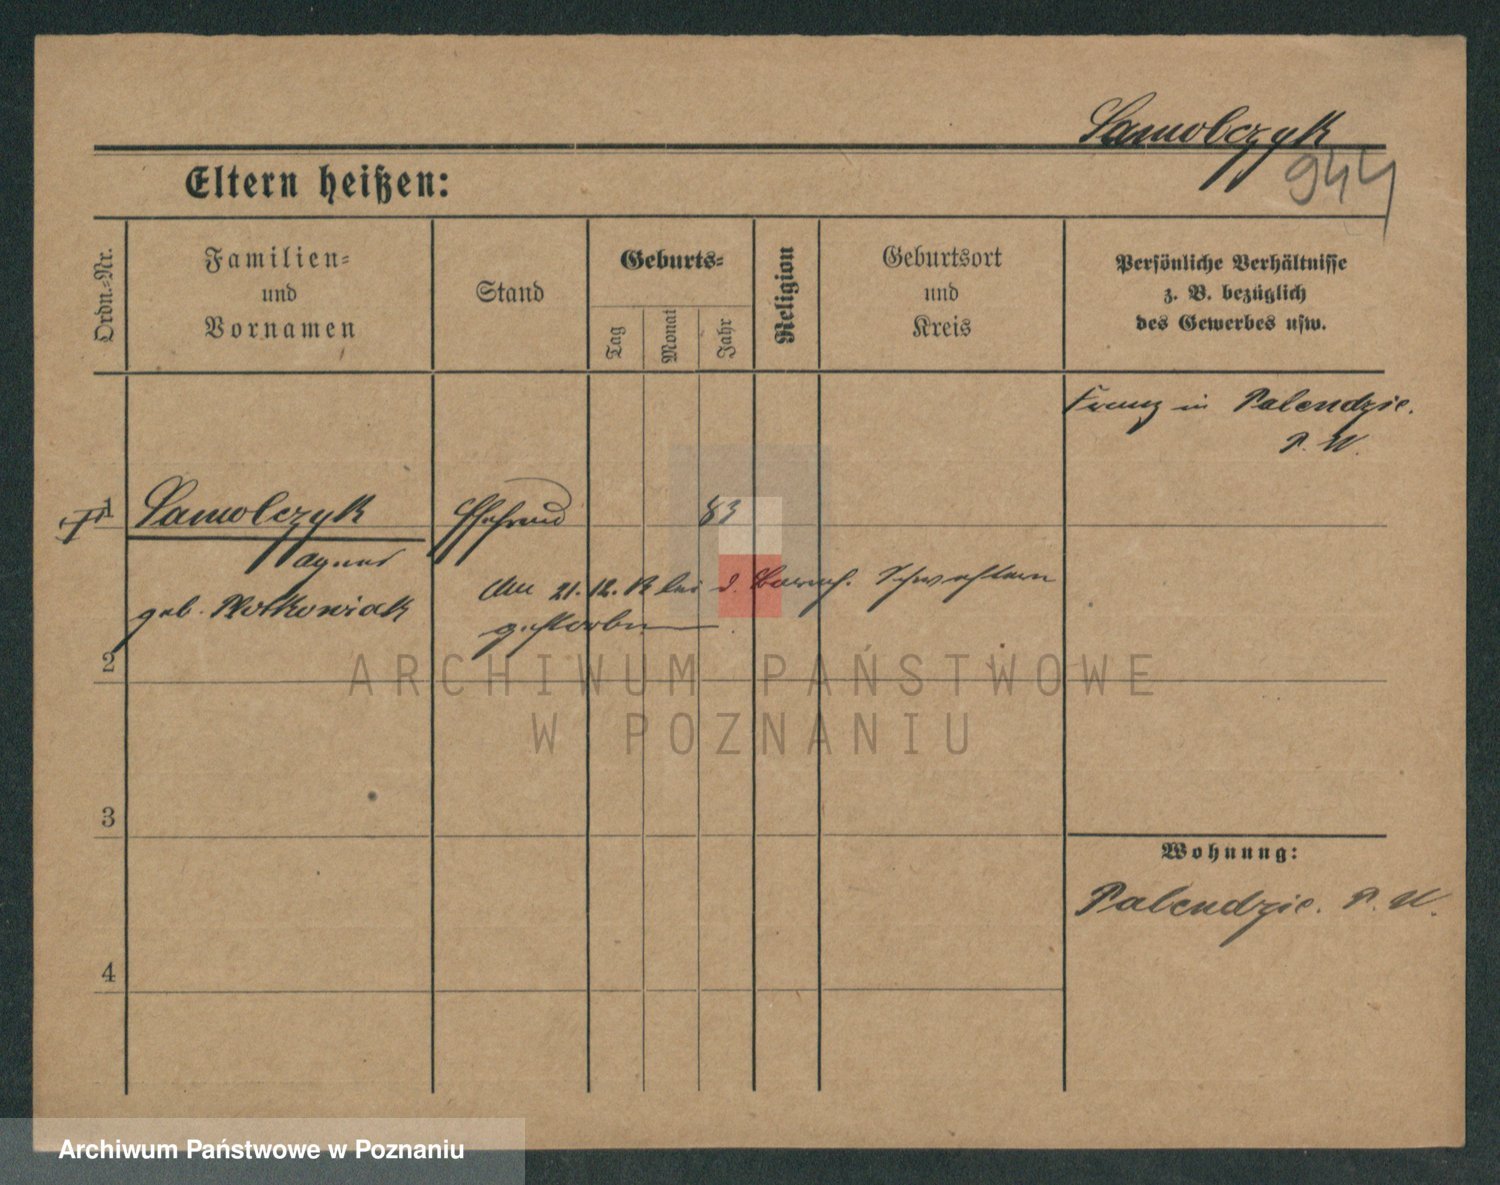 Samolczyk
944
Eltern heißen:
Ordn.-Nr.
Familien-
und
Vornamen
Stand
Geburts-
Tag
Monat
Jahr
Religion
Geburtsort
und
Kreis
Persönliche Verhältnisse
z. B. bezüglich
des Gewerbes usw.
Franz in Palendzie.
P. W.
1 Samolczyk Ehefrau 83
Agnes
geb. Notkowiak
Am 21.12. bei d. Barmh. Schwestern
gestorben
2
ARCHIWUM PAŃSTWOWE
W POZNANIU
3
Wohnung:
Palendzie. P. W.
4
Archiwum Państwowe w Poznaniu